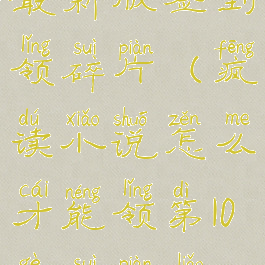 最新版签到
lǐng suì piàn fēng
领碎片（疯
dú xiǎo shuō zěn me
读小说怎么
cái néng lǐng dì
才能领第10
gè suì piàn